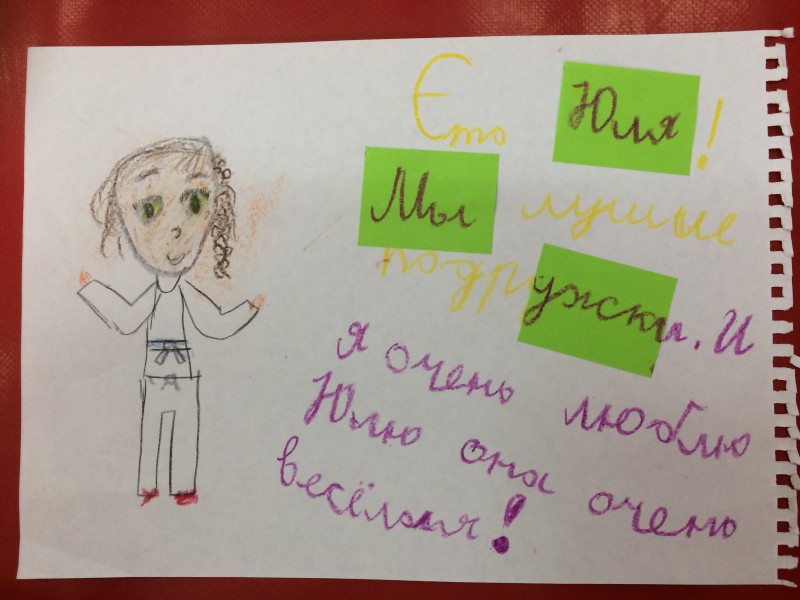 Єто Юля!
Мы лучшие
подружски. И
я очень люблю
Юлю она очень
весёлая!